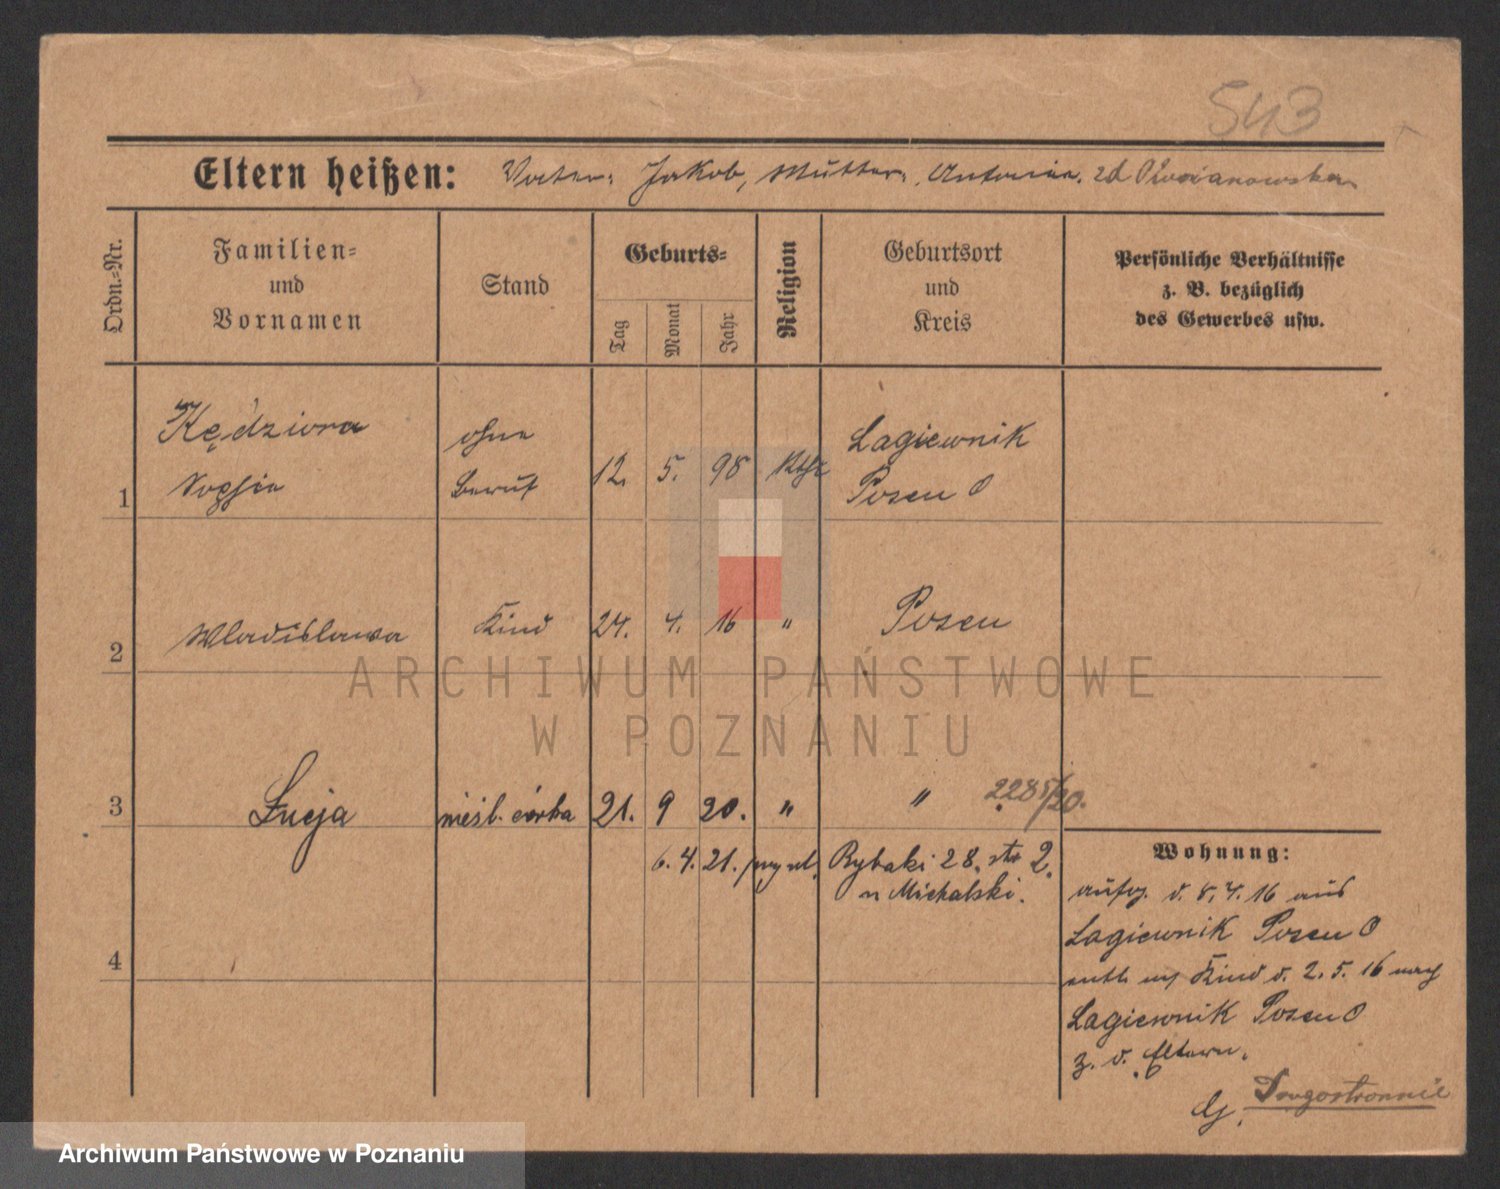 543
Eltern heißen: Vater: Jakob, Mutter: Antonia. zd
Ordn.-Nr.
Familien-
und
Vornamen
Stand
Geburts-
Tag
Monat
Jahr
Religion
Geburtsort
und
Kreis
Persönliche Verhältnisse
z. B. bezüglich
des Gewerbes usw.
Kędziora ohne Lagiewnik
1 Sophie Beruf 12. 5. 98 Kth Posen O
2 Wladislawa Kind 24. 4. 16 " Posen
ARCHIWUM PAŃSTWOWE
W POZNANIU
3 Łucja nieśl. córka 21. 9 20. " " 2285/20.
6. 4. 21. Rybaki 28. str 2.
Michalski.
4
Wohnung:
v. 8. 4. 16 aus
Lagiewnik Posen O
Kind v. 2. 5. 16 nach
Lagiewnik Posen O
z. d. Eltern.
Archiwum Państwowe w Poznaniu